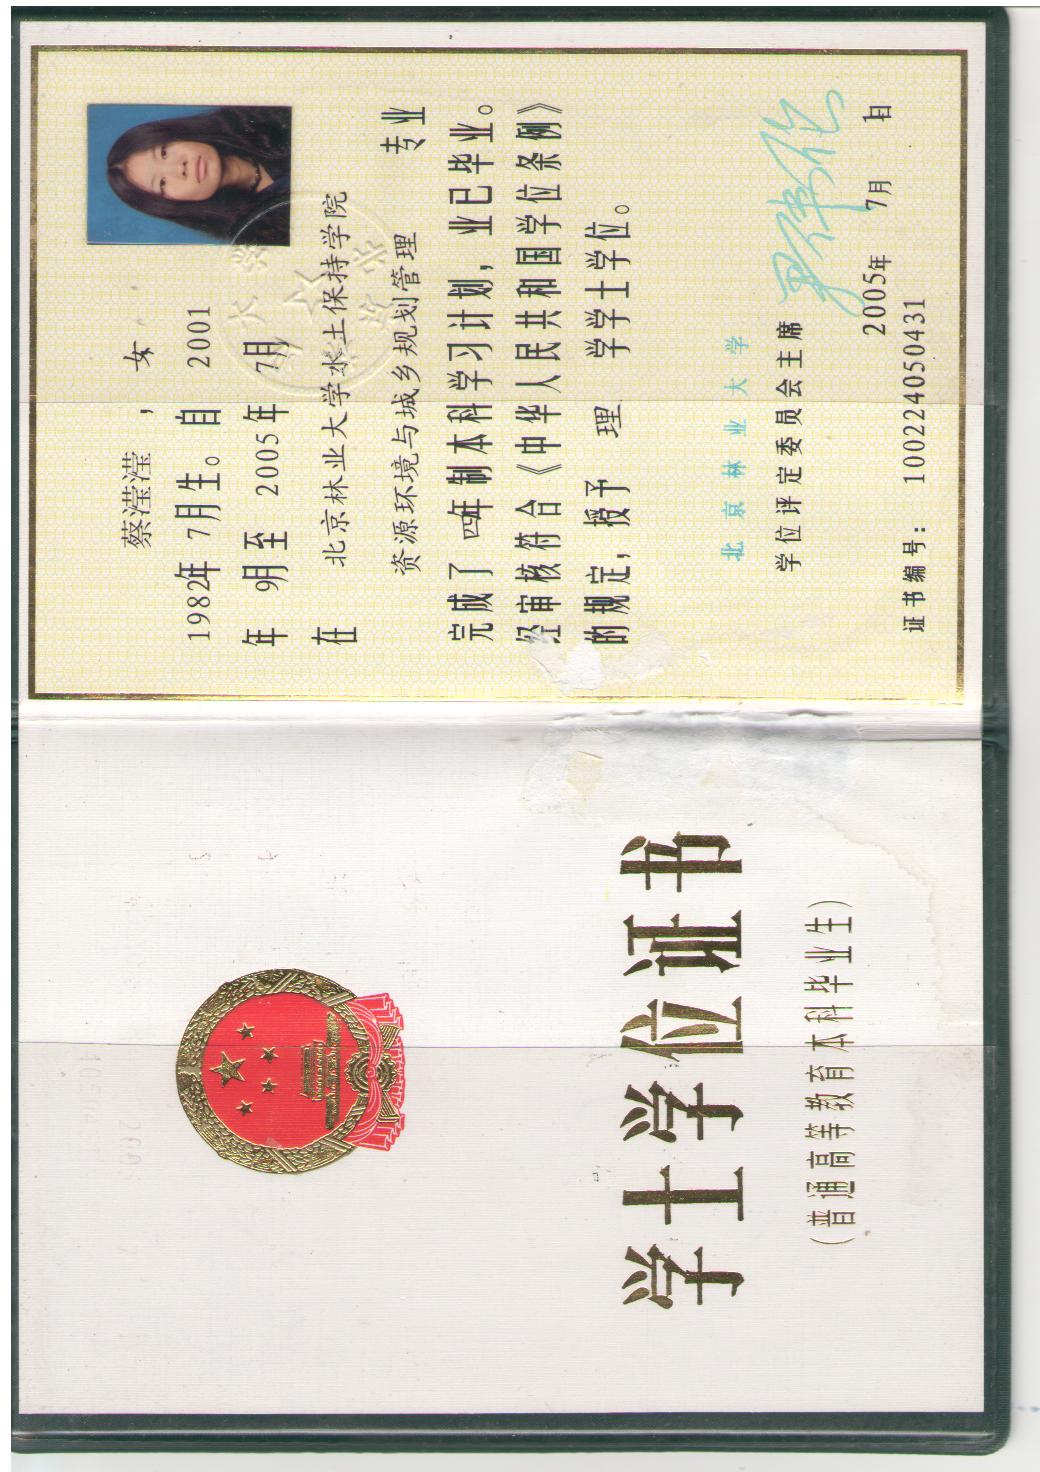 学士学位证书
(普通高等教育本科毕业生)
蔡滢滢 , 女
1982年 7月生。自 2001
年 9月至 2005年 7月
在 北京林业大学水土保持学院
资源环境与城乡规划管理 专业
完成了 四年制本科学习计划,业已毕业。
经审核符合《中华人民共和国学位条例》
的规定,授予 理 学学士学位。
北京林业大学
学位评定委员会主席
2005年 7月 1日
证书编号: 100224050431